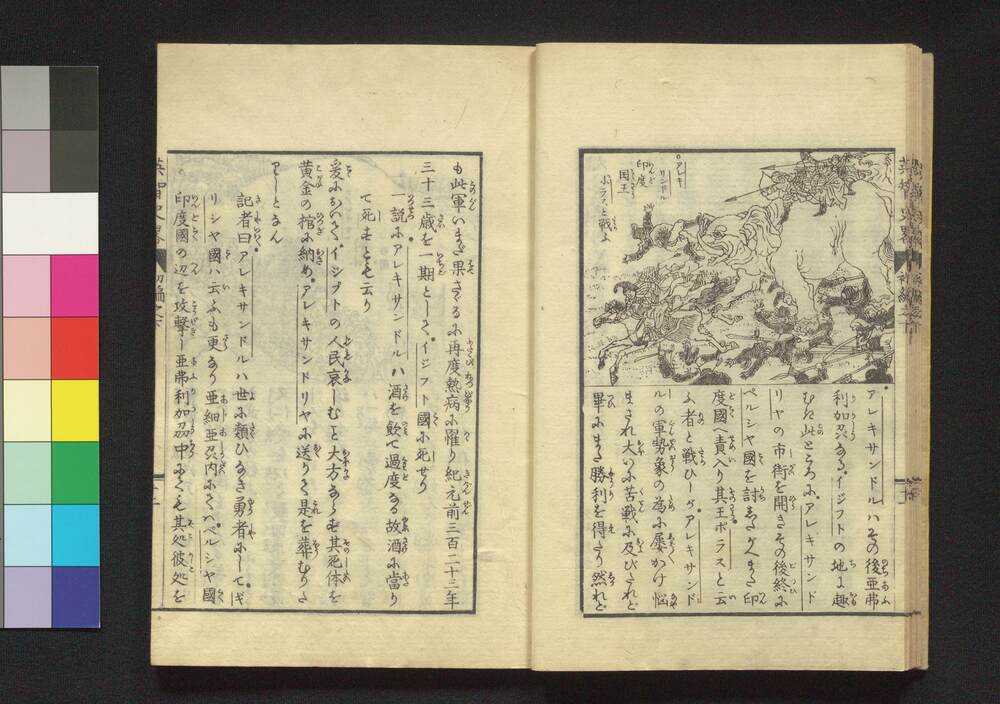 アレキ
サンドル
印度
国王
ポラスと戦ふ
アレキサンドルハその後亜弗
利加刕なる。イジフトの地に趣
むき此ところにアレキサンド
リヤの市街を開きその後終に
ペルシヤ國を討
印
度國へ責入り其王ポラスと云
ふ者と戦ひしがアレキサンド
ルの軍勢象の為に屡かけ悩
まされ大いに苦戦に及びたれど
畢にまた勝利を得たり然れど
も此軍いまだ果さゞるに再度熱病に罹り紀元前三百二十三年
三十三歳を一期として。イジフト國に死せり
一説にアレキサンドルハ酒を飲て過度なる故酒に當り
て死すとも云り
爰においてイジプトの人民哀しむこと大方ならず其死体を
黄金の棺に納め。アレキサンドリヤに送りて是を葬むりた
りしとなん
記者曰アレキサンドルハ世に類ひなき勇者にして。ギ
リシヤ國ハ云ふも更なり亜細亜刕内にてハ。ペルシヤ國
印度國の辺を攻撃し亜弗利加刕中にても其処彼処を